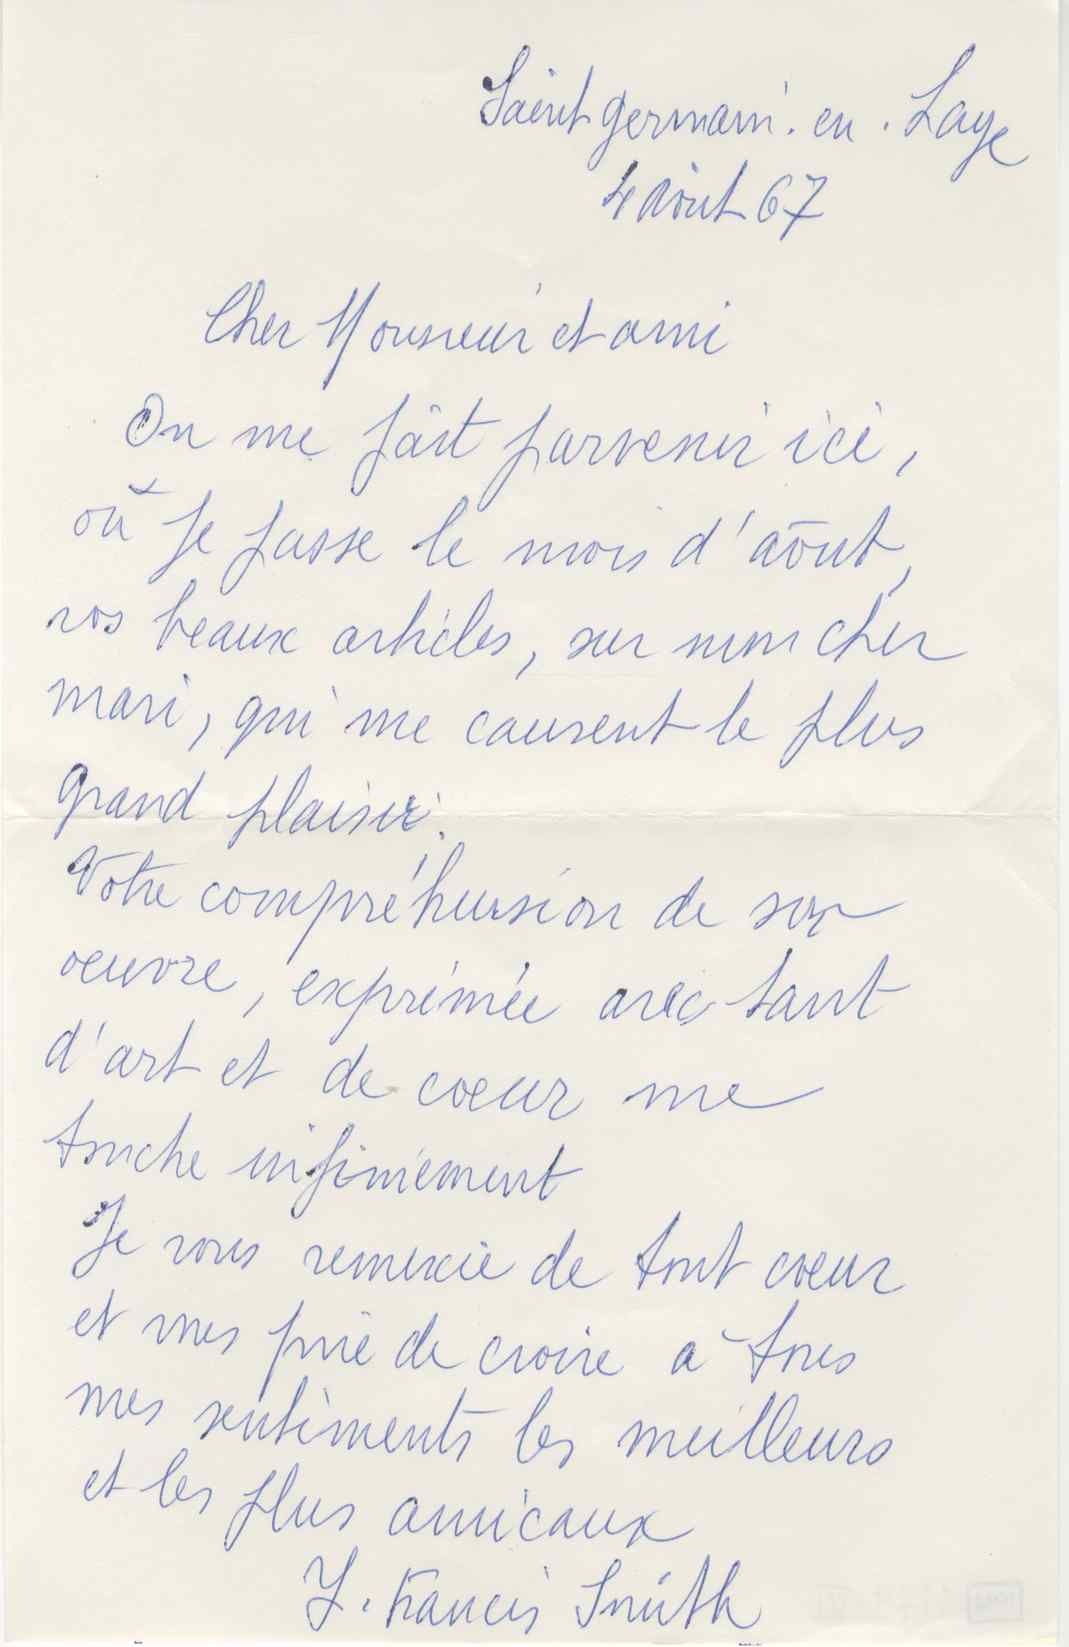 Saint germain. en. Laye
4 Août 67
Cher Monsieur et ami
On me fait parvenir ici,
où je passe le mois d'août,
vos beaux articles, sur mon cher
mari, qui me causent le plus
grand plaisir.
Votre compréhension de son
oeuvre, exprimée avec tant
d'art et de coeur me
touche infiniement
Je vous remercie de tout coeur
et vous prie de croire a tous
mes sentiments les meilleurs
et les plus amicaux
Y. Francis Smith